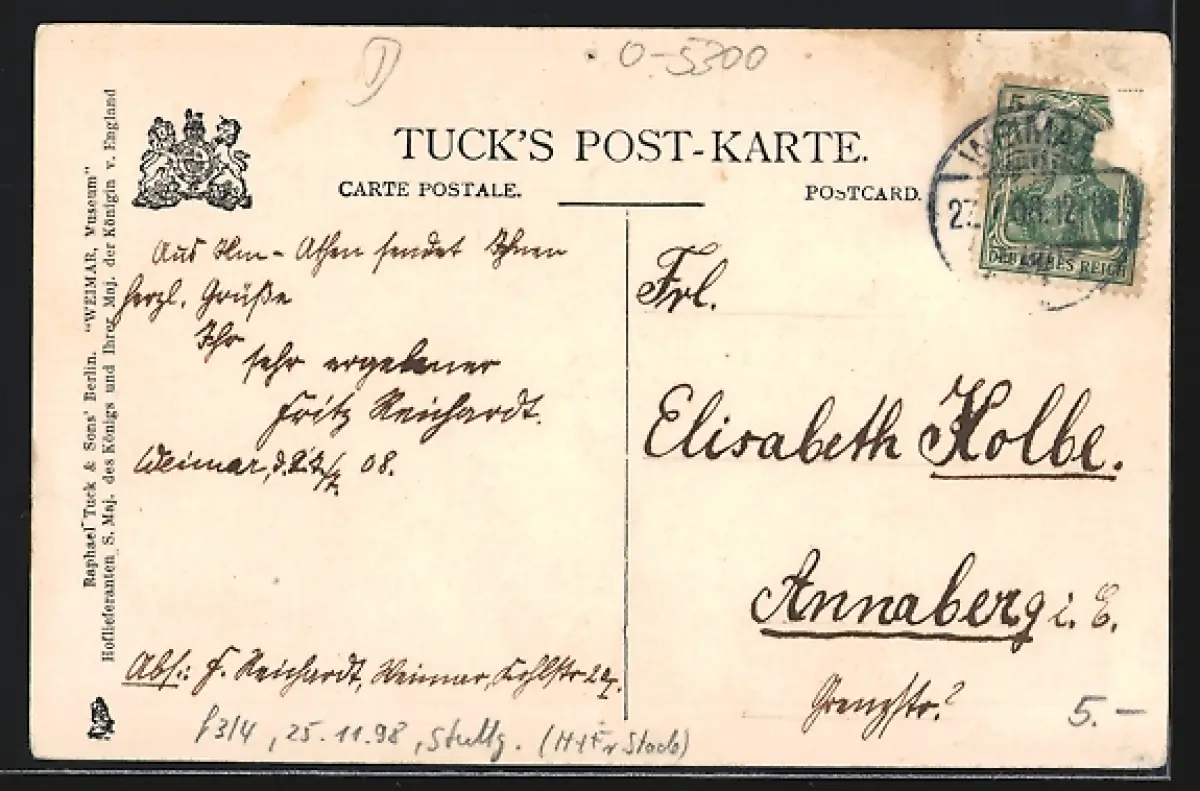 ① O-5300
TUCK'S POST-KARTE.
CARTE POSTALE. POSTCARD.
5
WEIMAR
27. 08.12
DEUTSCHES REICH
Raphael Tuck & Sons' Berlin. "WEIMAR, Museum"
Hoflieferanten S. Maj. des Königs und Ihrer Maj. der Königin v. England
Aus Ilm-Athen sendet Ihnen
herzl. Grüße
Ihr
sehr ergebener
Fritz Reichardt.
Weimar, 08.
Abs.: F. Reichardt, Weimar, Kohlstr
Frl.
Elisabeth Kolbe.
Annaberg i. E.
Grenzstr.?
5.-
f3/4, 25.11.98, Stuttg.